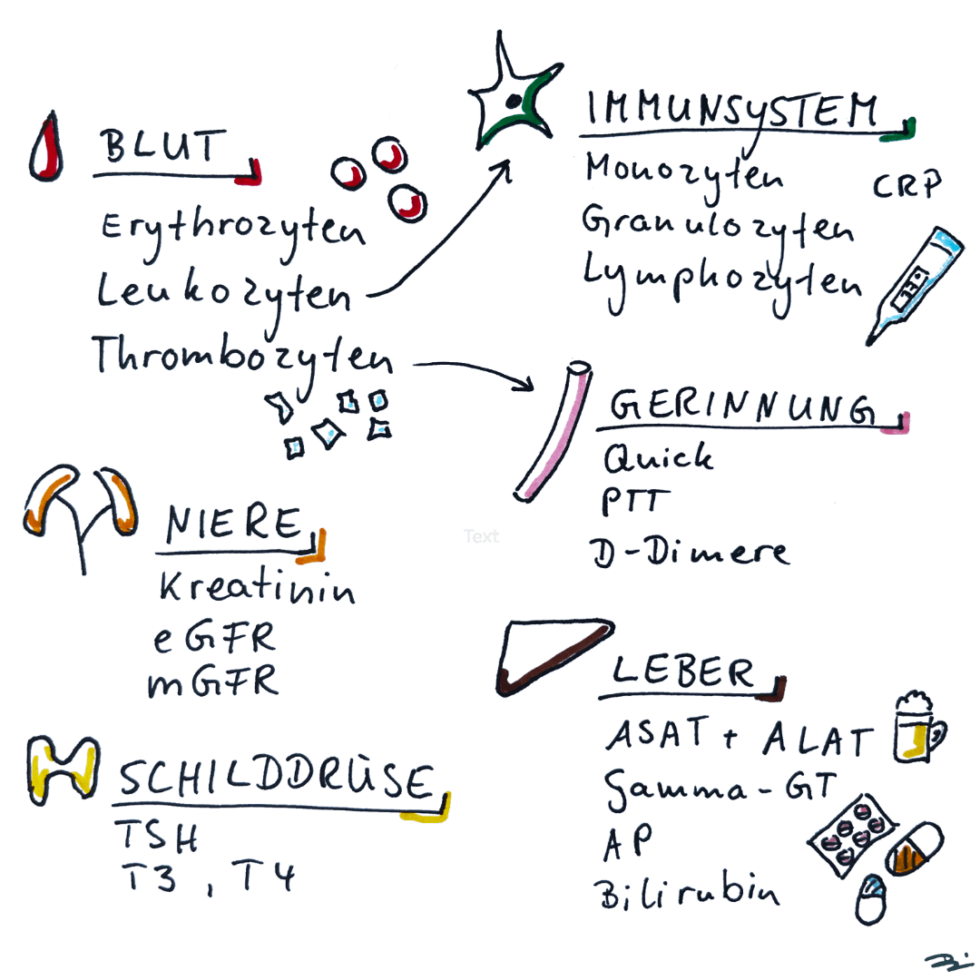 BLUT
Erythrozyten
Leukozyten
Thrombozyten
IMMUNSYSTEM
Monozyten
Granulozyten
Lymphozyten
CRP
GERINNUNG
Quick
PTT
D-Dimere
NIERE
Kreatinin
eGFR
mGFR
Text
LEBER
ASAT + ALAT
Gamma-GT
AP
Bilirubin
SCHILDDRÜSE
TSH
T3, T4